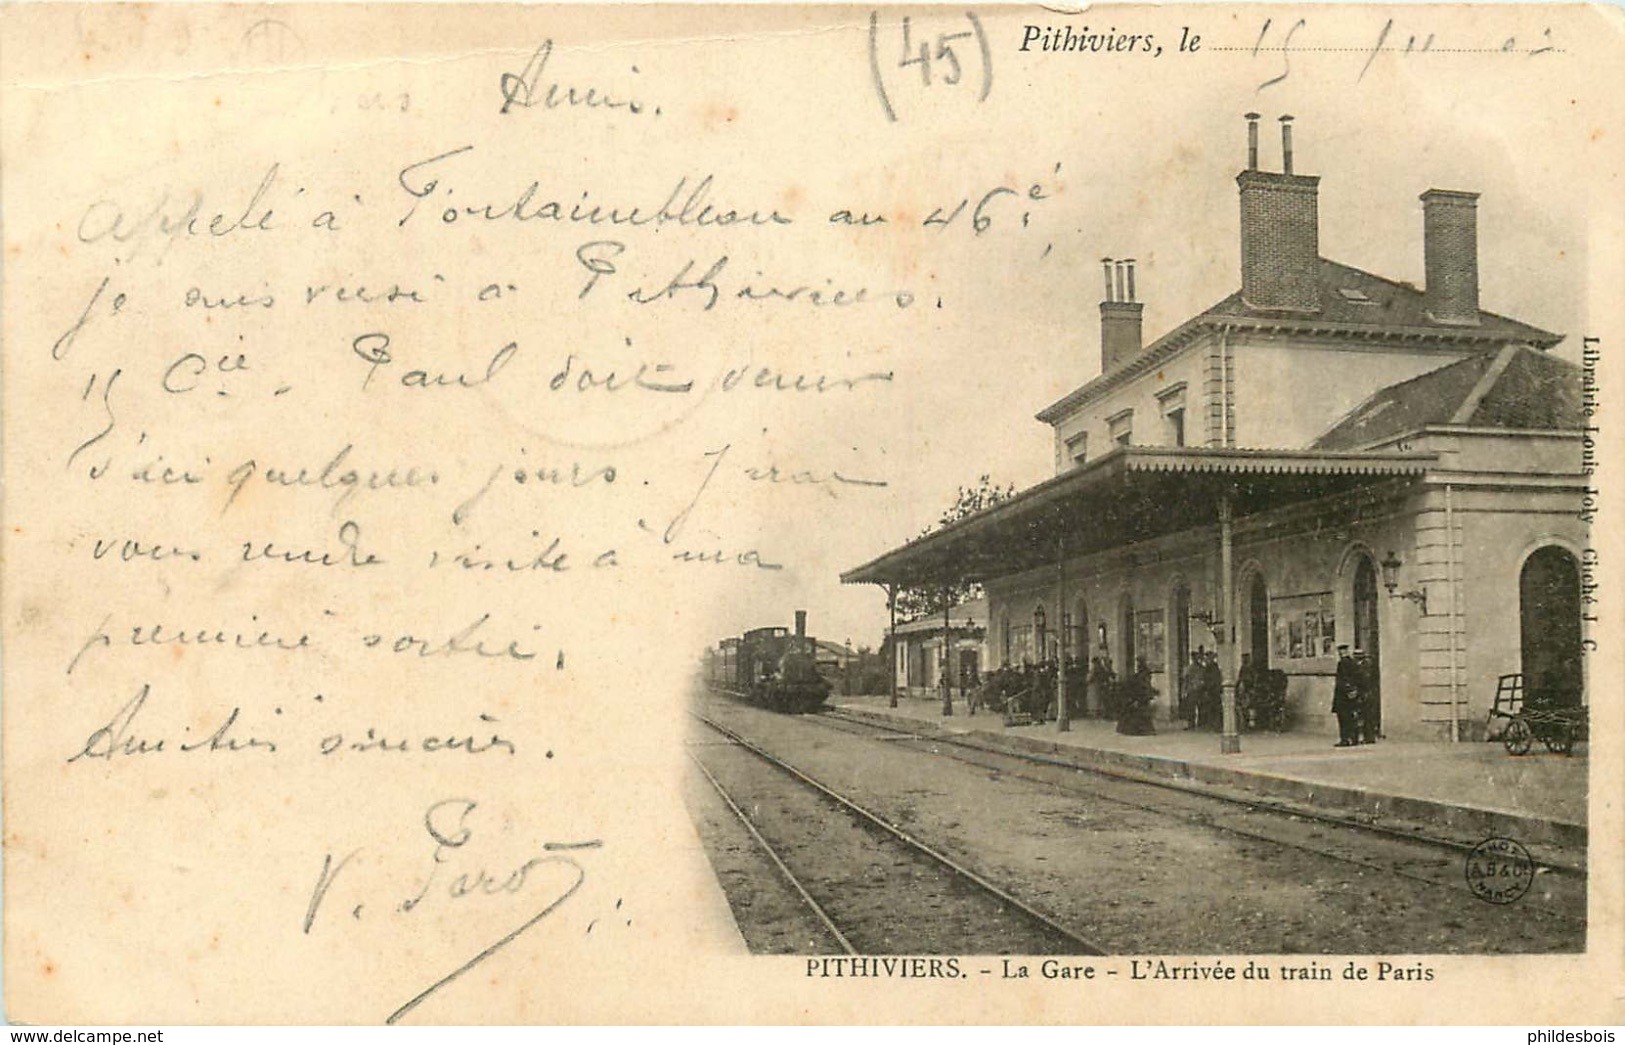 (45)
Pithiviers, le 15 / 11
Amis.
Appelé à Fontainebleau au 46e,
je suis versé à Pithiviers.
15 Cie. Paul doit venir
d'ici quelques jours. J'irai
vous rendre visite à ma
première sortie.
Amitiés sincères.
V.
Librairie Louis Joly - Cliché J. C.
PHOT
A.B & Cie
NANCY
PITHIVIERS. - La Gare - L'Arrivée du train de Paris
www.delcampe.net
phildesbois